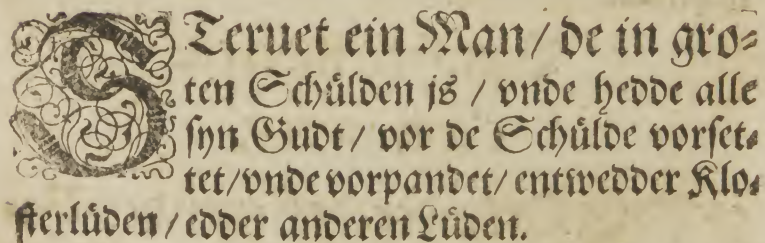 STeruet ein Man / de in gro⸗
ten Schuͤlden is / vnde hedde alle
syn Gudt / vor de Schuͤlde vorset⸗
tet / vnde vorpandet / entwedder Klo⸗
sterluͤden / edder anderen Luͤden.